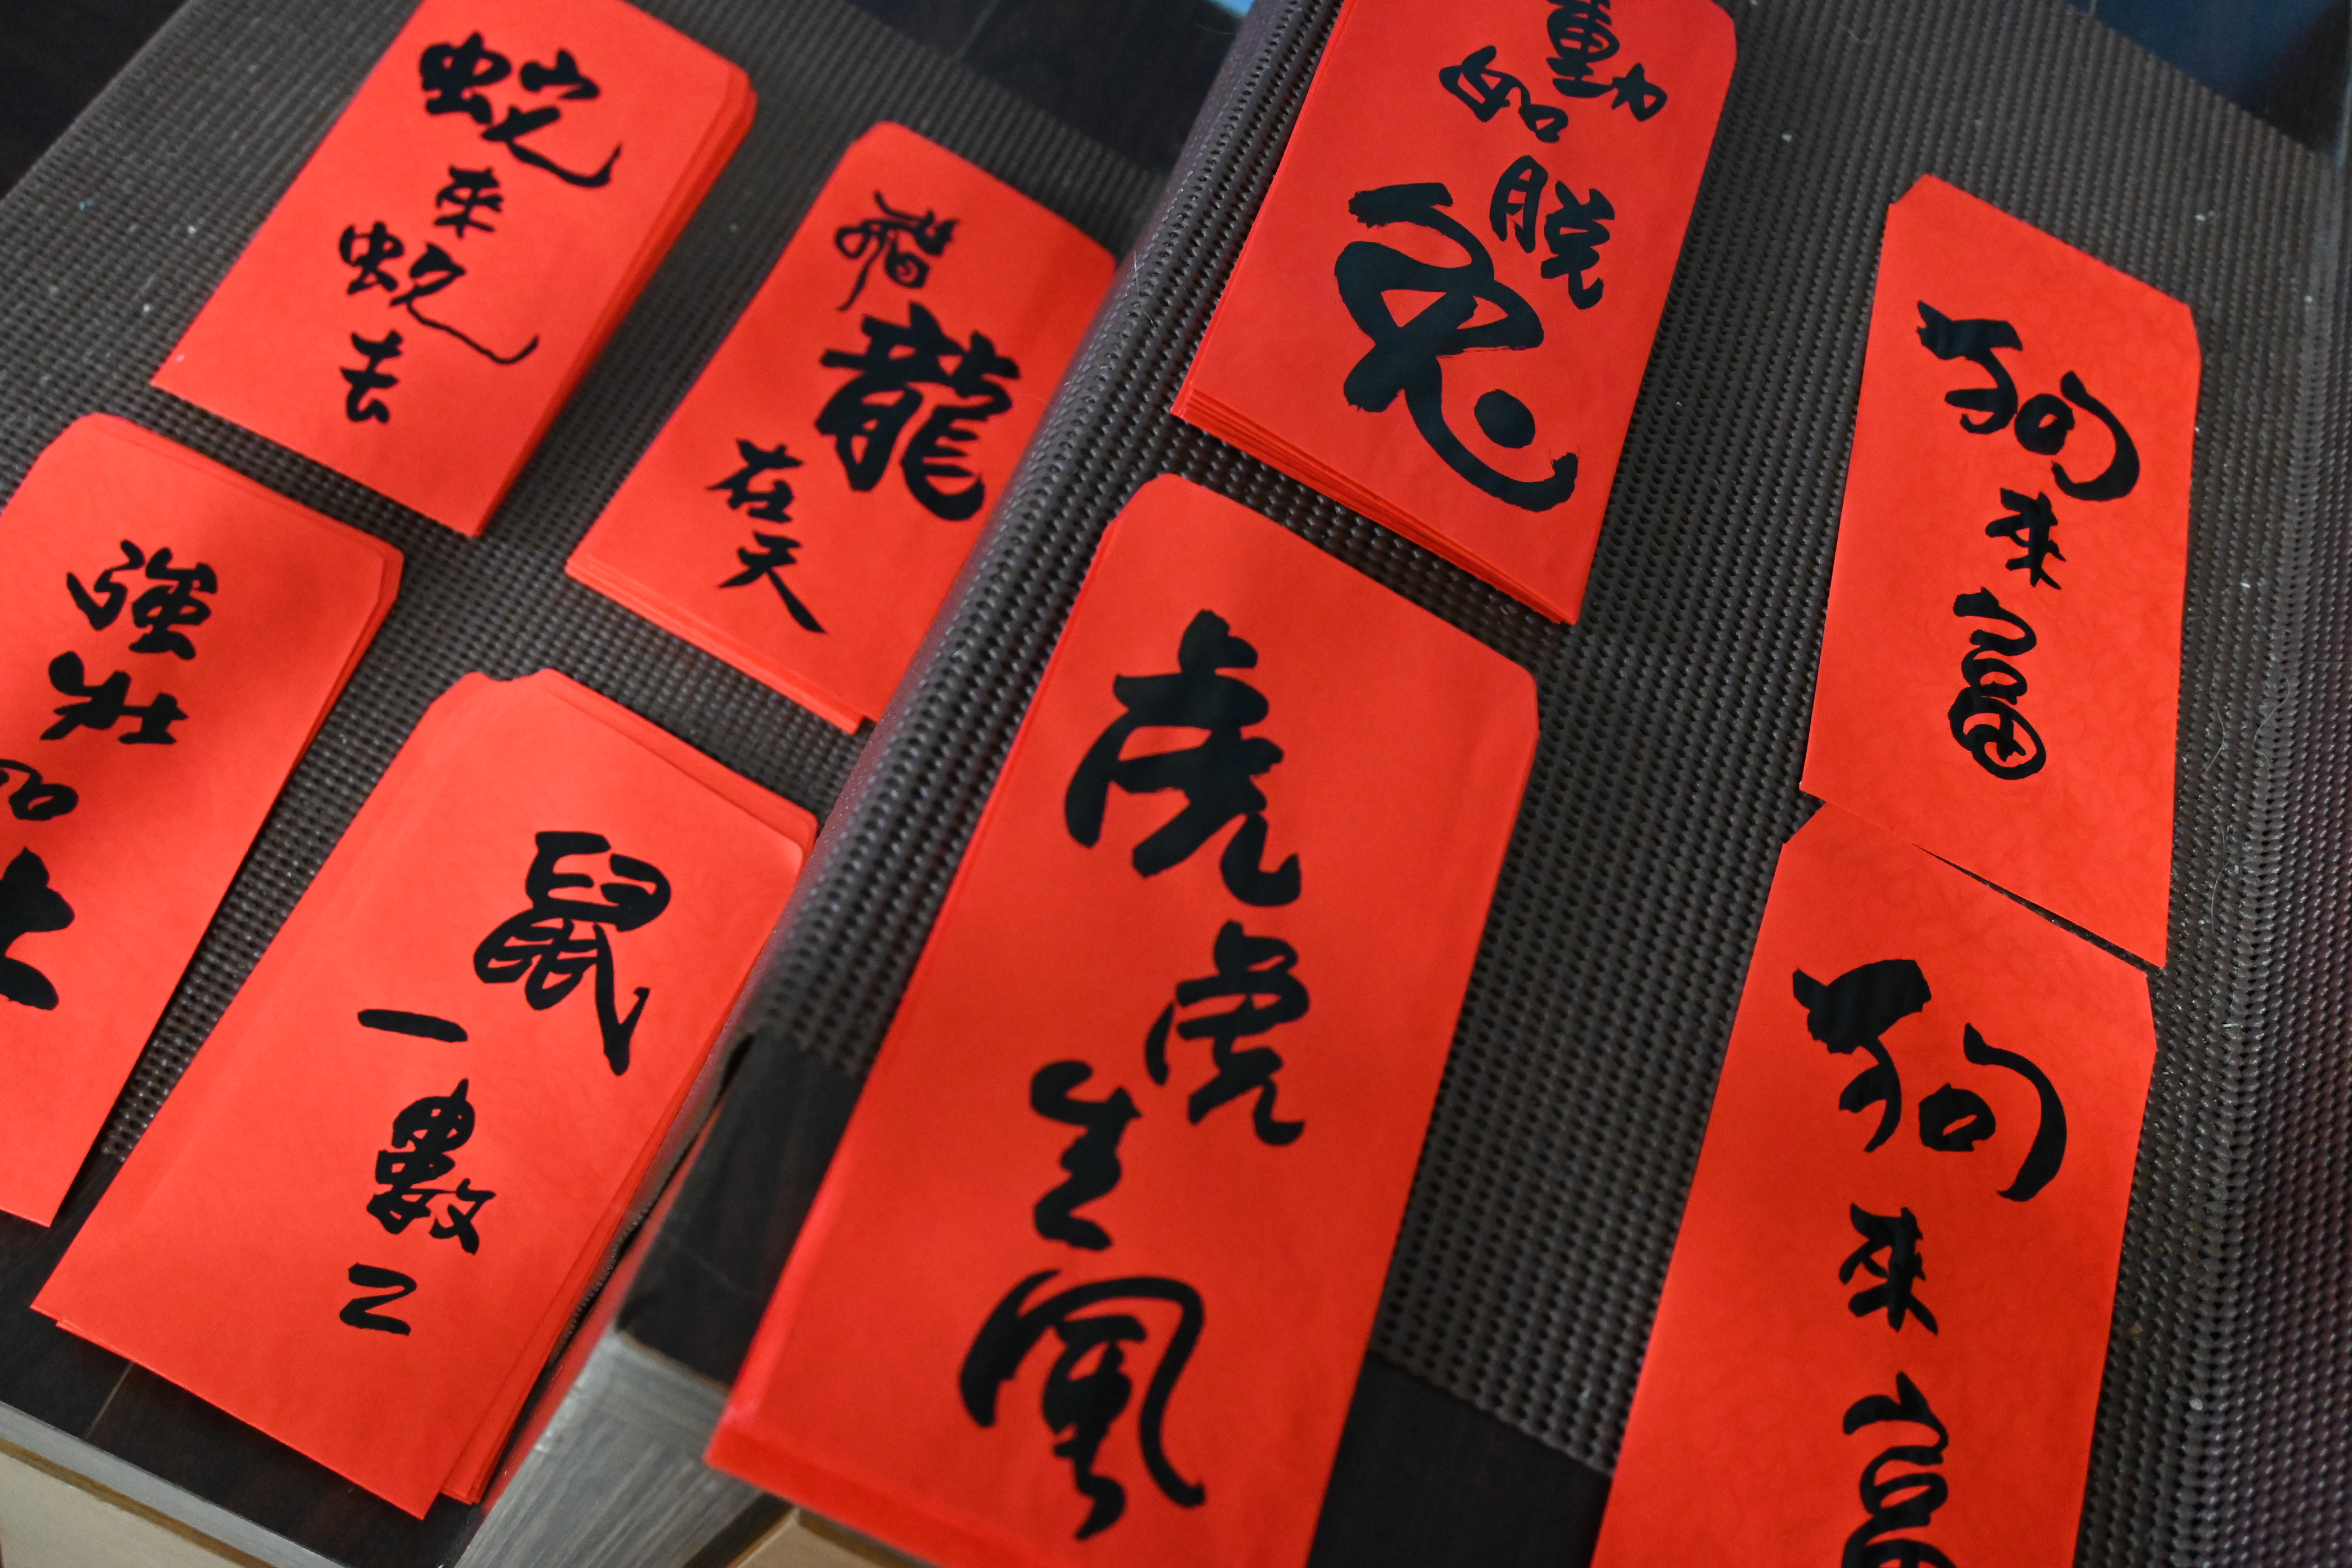 蛇來蛇去
飛龍在天
動如脫兔
狗來富
強壯如牛
鼠一數二
虎虎生風
狗來富